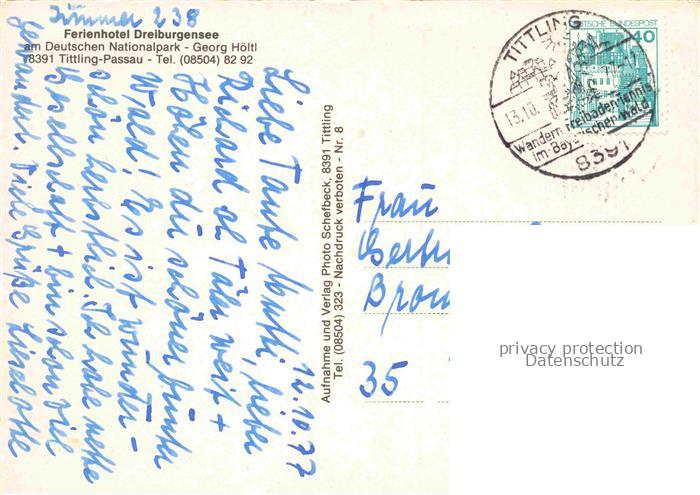 Zimmer 238
Ferienhotel Dreiburgensee
am Deutschen Nationalpark - Georg Höltl
8391 Tittling-Passau - Tel. (08504) 82 92
12.10.77
Liebe Tante Mutti, lieber
Richard o Täler weit +
Höhen du schöner grüner
Wald! Es ist wunder-
schön herbstlich. Ich habe nette
Gesellschaft + bin schon viel
gewandert. Viele Grüße Liselotte
Aufnahme und Verlag Photo Schefbeck, 8391 Tittling
Tel. (08504) 323 - Nachdruck verboten - Nr. 8
TITTLING
13.10.
Wandern Freibaden Tennis
im Bayerischen Wald
8391
DEUTSCHE BUNDESPOST
40
Frau
35
privacy protection
Datenschutz